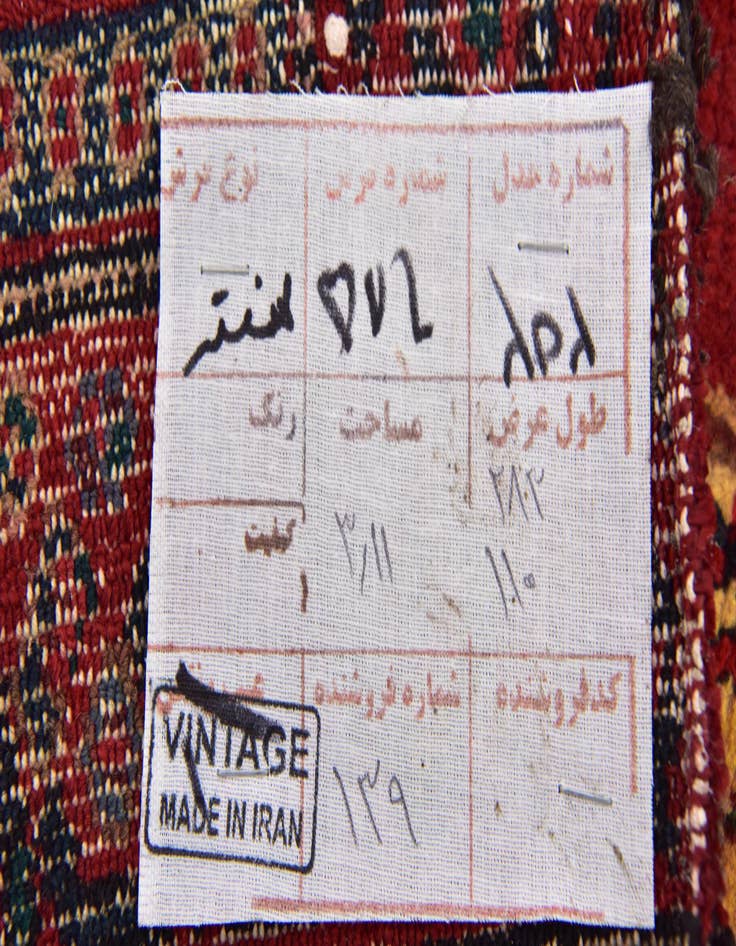 شماره عدل
شماره فرش
نوع فرش
۸۵۸
۵۷۶
طول عرض
مساحت
رنگ
۲۸۳
۱۱۰
۳٫۱۱
کد فروشنده
شماره فروشنده
۱۳۹
VINTAGE
MADE IN IRAN